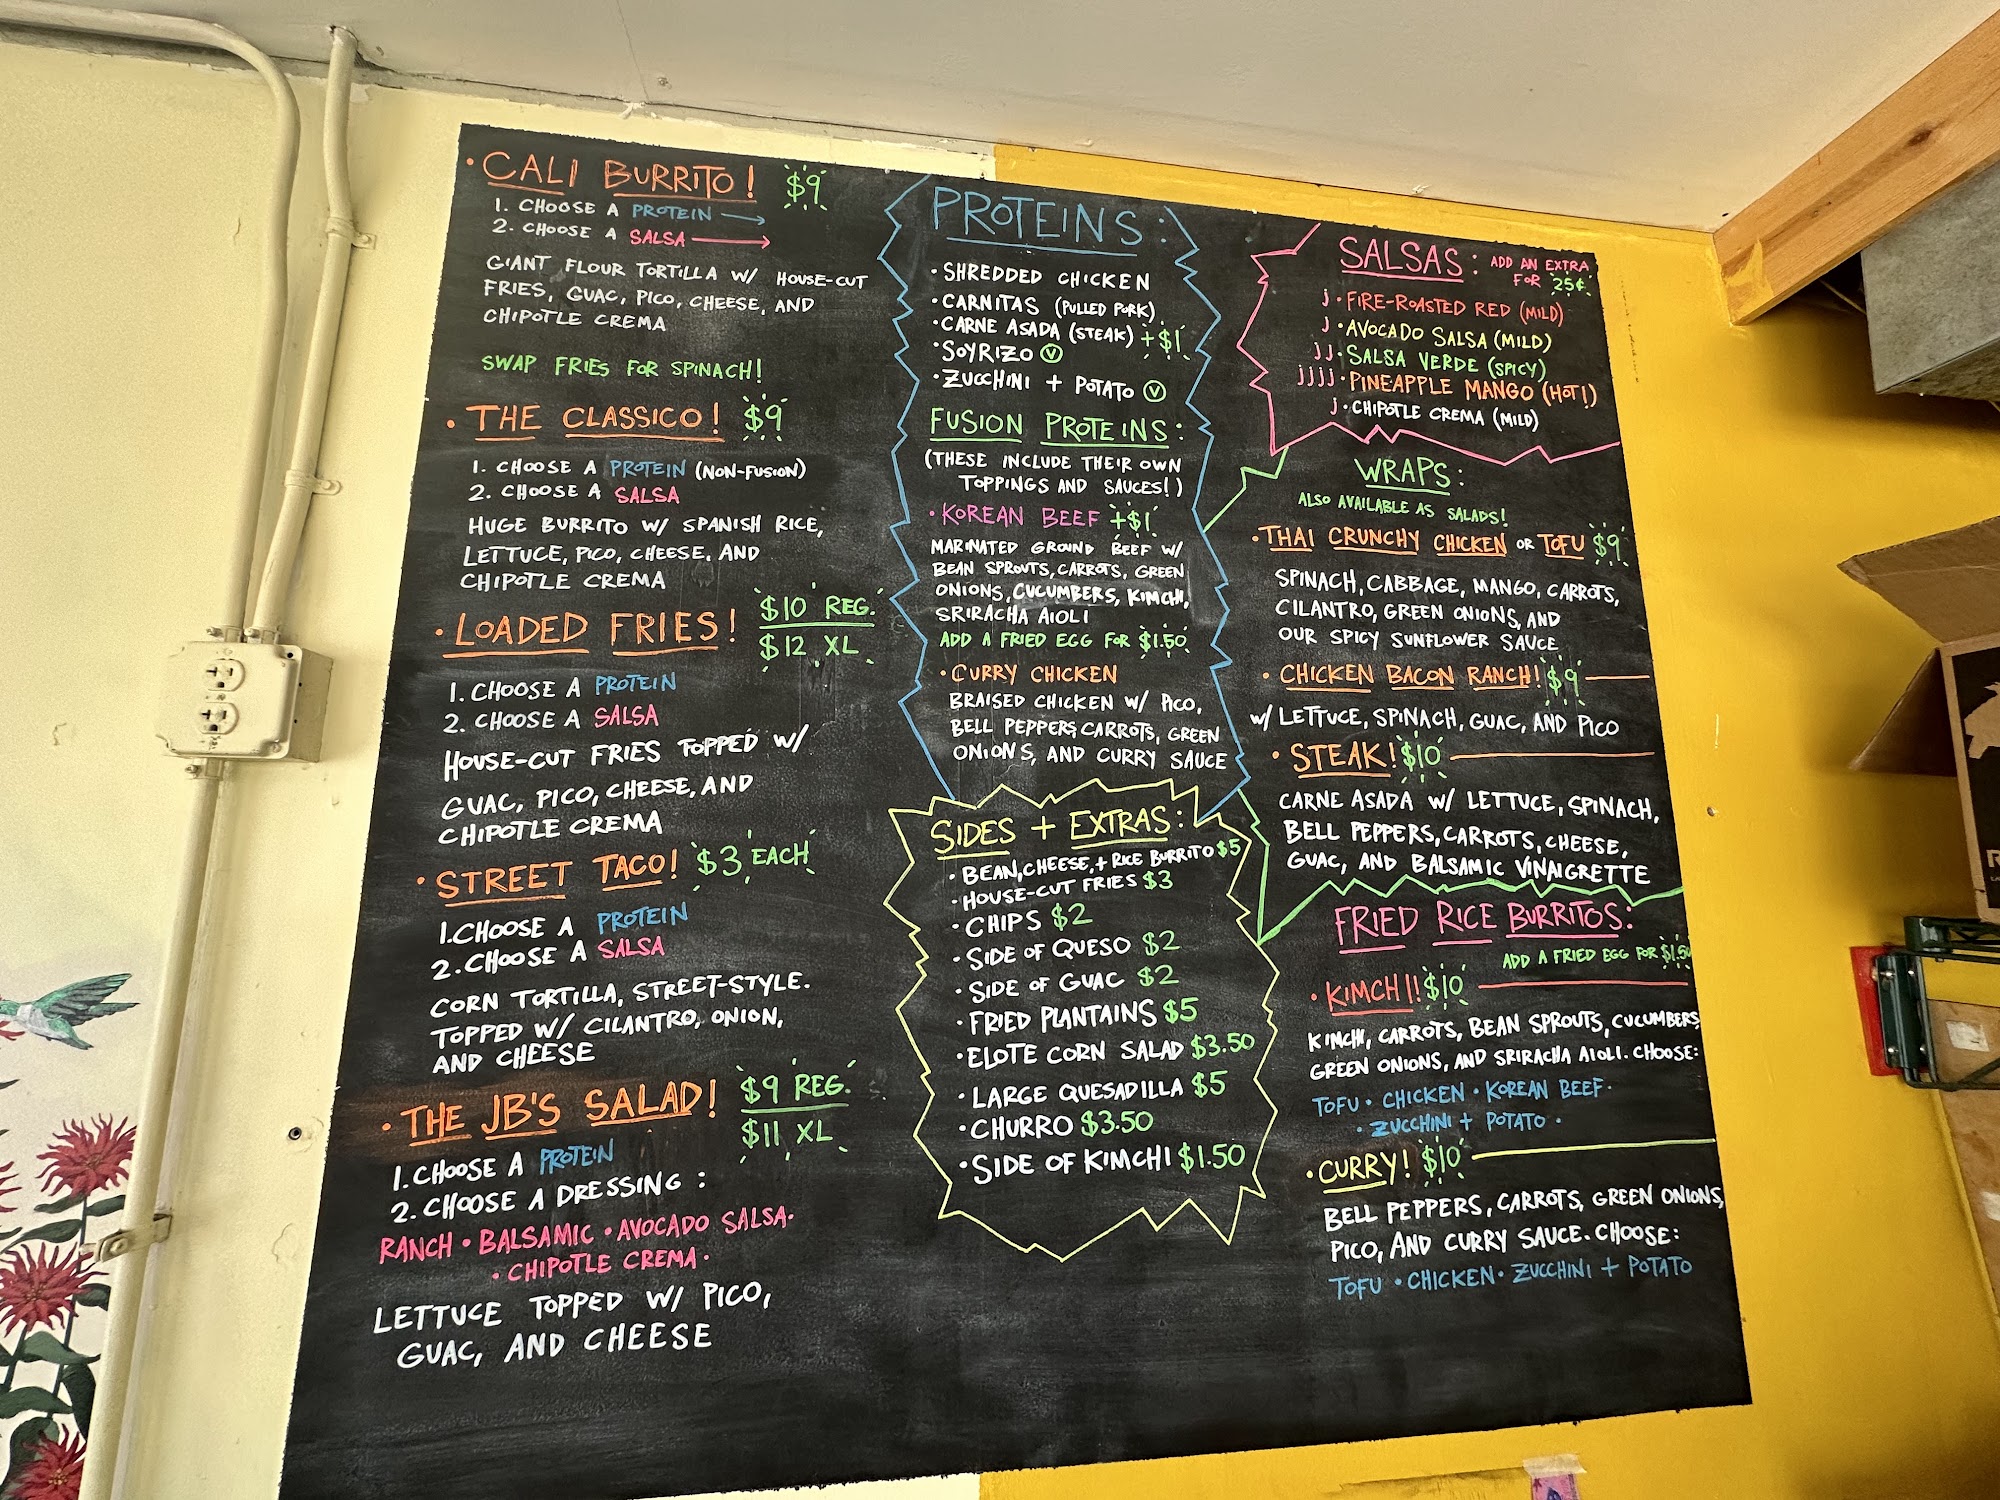 • CALI BURRITO! $9
1. CHOOSE A PROTEIN
2. CHOOSE A SALSA
GIANT FLOUR TORTILLA W/ HOUSE-CUT
FRIES, GUAC, PICO, CHEESE, AND
CHIPOTLE CREMA
SWAP FRIES FOR SPINACH!
• THE CLASSICO! $9
1. CHOOSE A PROTEIN (NON-FUSION)
2. CHOOSE A SALSA
HUGE BURRITO W/ SPANISH RICE,
LETTUCE, PICO, CHEESE, AND
CHIPOTLE CREMA
• LOADED FRIES! $10 REG.
$12 XL
1. CHOOSE A PROTEIN
2. CHOOSE A SALSA
HOUSE-CUT FRIES TOPPED W/
GUAC, PICO, CHEESE, AND
CHIPOTLE CREMA
• STREET TACO! $3 EACH
1. CHOOSE A PROTEIN
2. CHOOSE A SALSA
CORN TORTILLA, STREET-STYLE.
TOPPED W/ CILANTRO, ONION,
AND CHEESE
• THE JB'S SALAD! $9 REG.
$11 XL
1. CHOOSE A PROTEIN
2. CHOOSE A DRESSING:
RANCH • BALSAMIC • AVOCADO SALSA•
• CHIPOTLE CREMA •
LETTUCE TOPPED W/ PICO,
GUAC, AND CHEESE
PROTEINS:
• SHREDDED CHICKEN
• CARNITAS (PULLED PORK)
• CARNE ASADA (STEAK) +$1
• SOYRIZO V
• ZUCCHINI + POTATO V
FUSION PROTEINS:
(THESE INCLUDE THEIR OWN
TOPPINGS AND SAUCES!)
• KOREAN BEEF +$1
MARINATED GROUND BEEF W/
BEAN SPROUTS, CARROTS, GREEN
ONIONS, CUCUMBERS, KIMCHI,
SRIRACHA AIOLI
ADD A FRIED EGG FOR $1.50
• CURRY CHICKEN
BRAISED CHICKEN W/ PICO,
BELL PEPPERS, CARROTS, GREEN
ONIONS, AND CURRY SAUCE
SIDES + EXTRAS:
• BEAN, CHEESE, + RICE BURRITO $5
• HOUSE-CUT FRIES $3
• CHIPS $2
• SIDE OF QUESO $2
• SIDE OF GUAC $2
• FRIED PLANTAINS $5
• ELOTE CORN SALAD $3.50
• LARGE QUESADILLA $5
• CHURRO $3.50
• SIDE OF KIMCHI $1.50
SALSAS: ADD AN EXTRA
FOR 25¢
J • FIRE-ROASTED RED (MILD)
J • AVOCADO SALSA (MILD)
JJ • SALSA VERDE (SPICY)
JJJJ • PINEAPPLE MANGO (HOT!)
J • CHIPOTLE CREMA (MILD)
WRAPS:
ALSO AVAILABLE AS SALADS!
• THAI CRUNCHY CHICKEN OR TOFU $9
SPINACH, CABBAGE, MANGO, CARROTS,
CILANTRO, GREEN ONIONS, AND
OUR SPICY SUNFLOWER SAUCE
• CHICKEN BACON RANCH! $9
W/ LETTUCE, SPINACH, GUAC, AND PICO
• STEAK! $10
CARNE ASADA W/ LETTUCE, SPINACH,
BELL PEPPERS, CARROTS, CHEESE,
GUAC, AND BALSAMIC VINAIGRETTE
FRIED RICE BURRITOS:
ADD A FRIED EGG FOR $1.50
• KIMCHI! $10
KIMCHI, CARROTS, BEAN SPROUTS, CUCUMBERS,
GREEN ONIONS, AND SRIRACHA AIOLI. CHOOSE:
TOFU • CHICKEN • KOREAN BEEF •
• ZUCCHINI + POTATO •
• CURRY! $10
BELL PEPPERS, CARROTS, GREEN ONIONS,
PICO, AND CURRY SAUCE. CHOOSE:
TOFU • CHICKEN • ZUCCHINI + POTATO